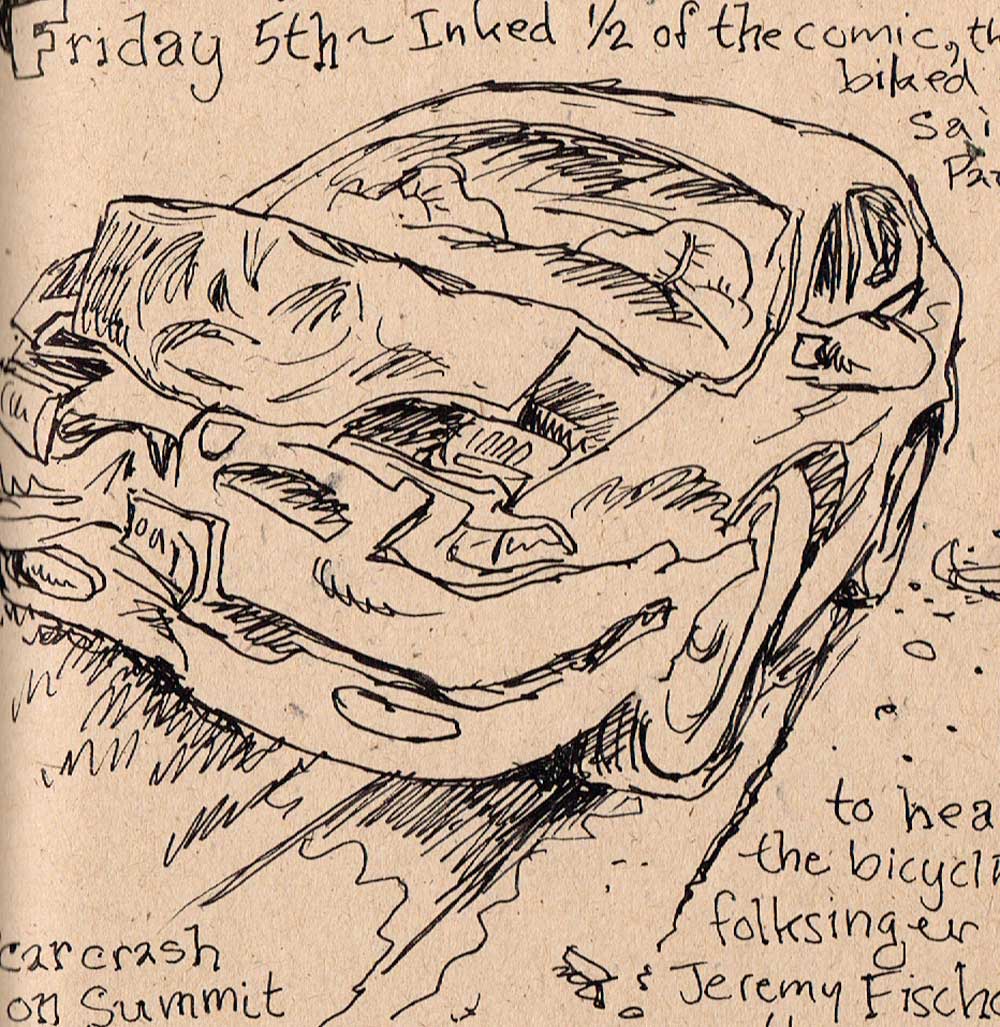 Friday 5th~ Inked 1/2 of the comic, th
biked
Sai
Par
to hea
the bicycli
folksinger
Jeremy Fische
car crash
on Summit